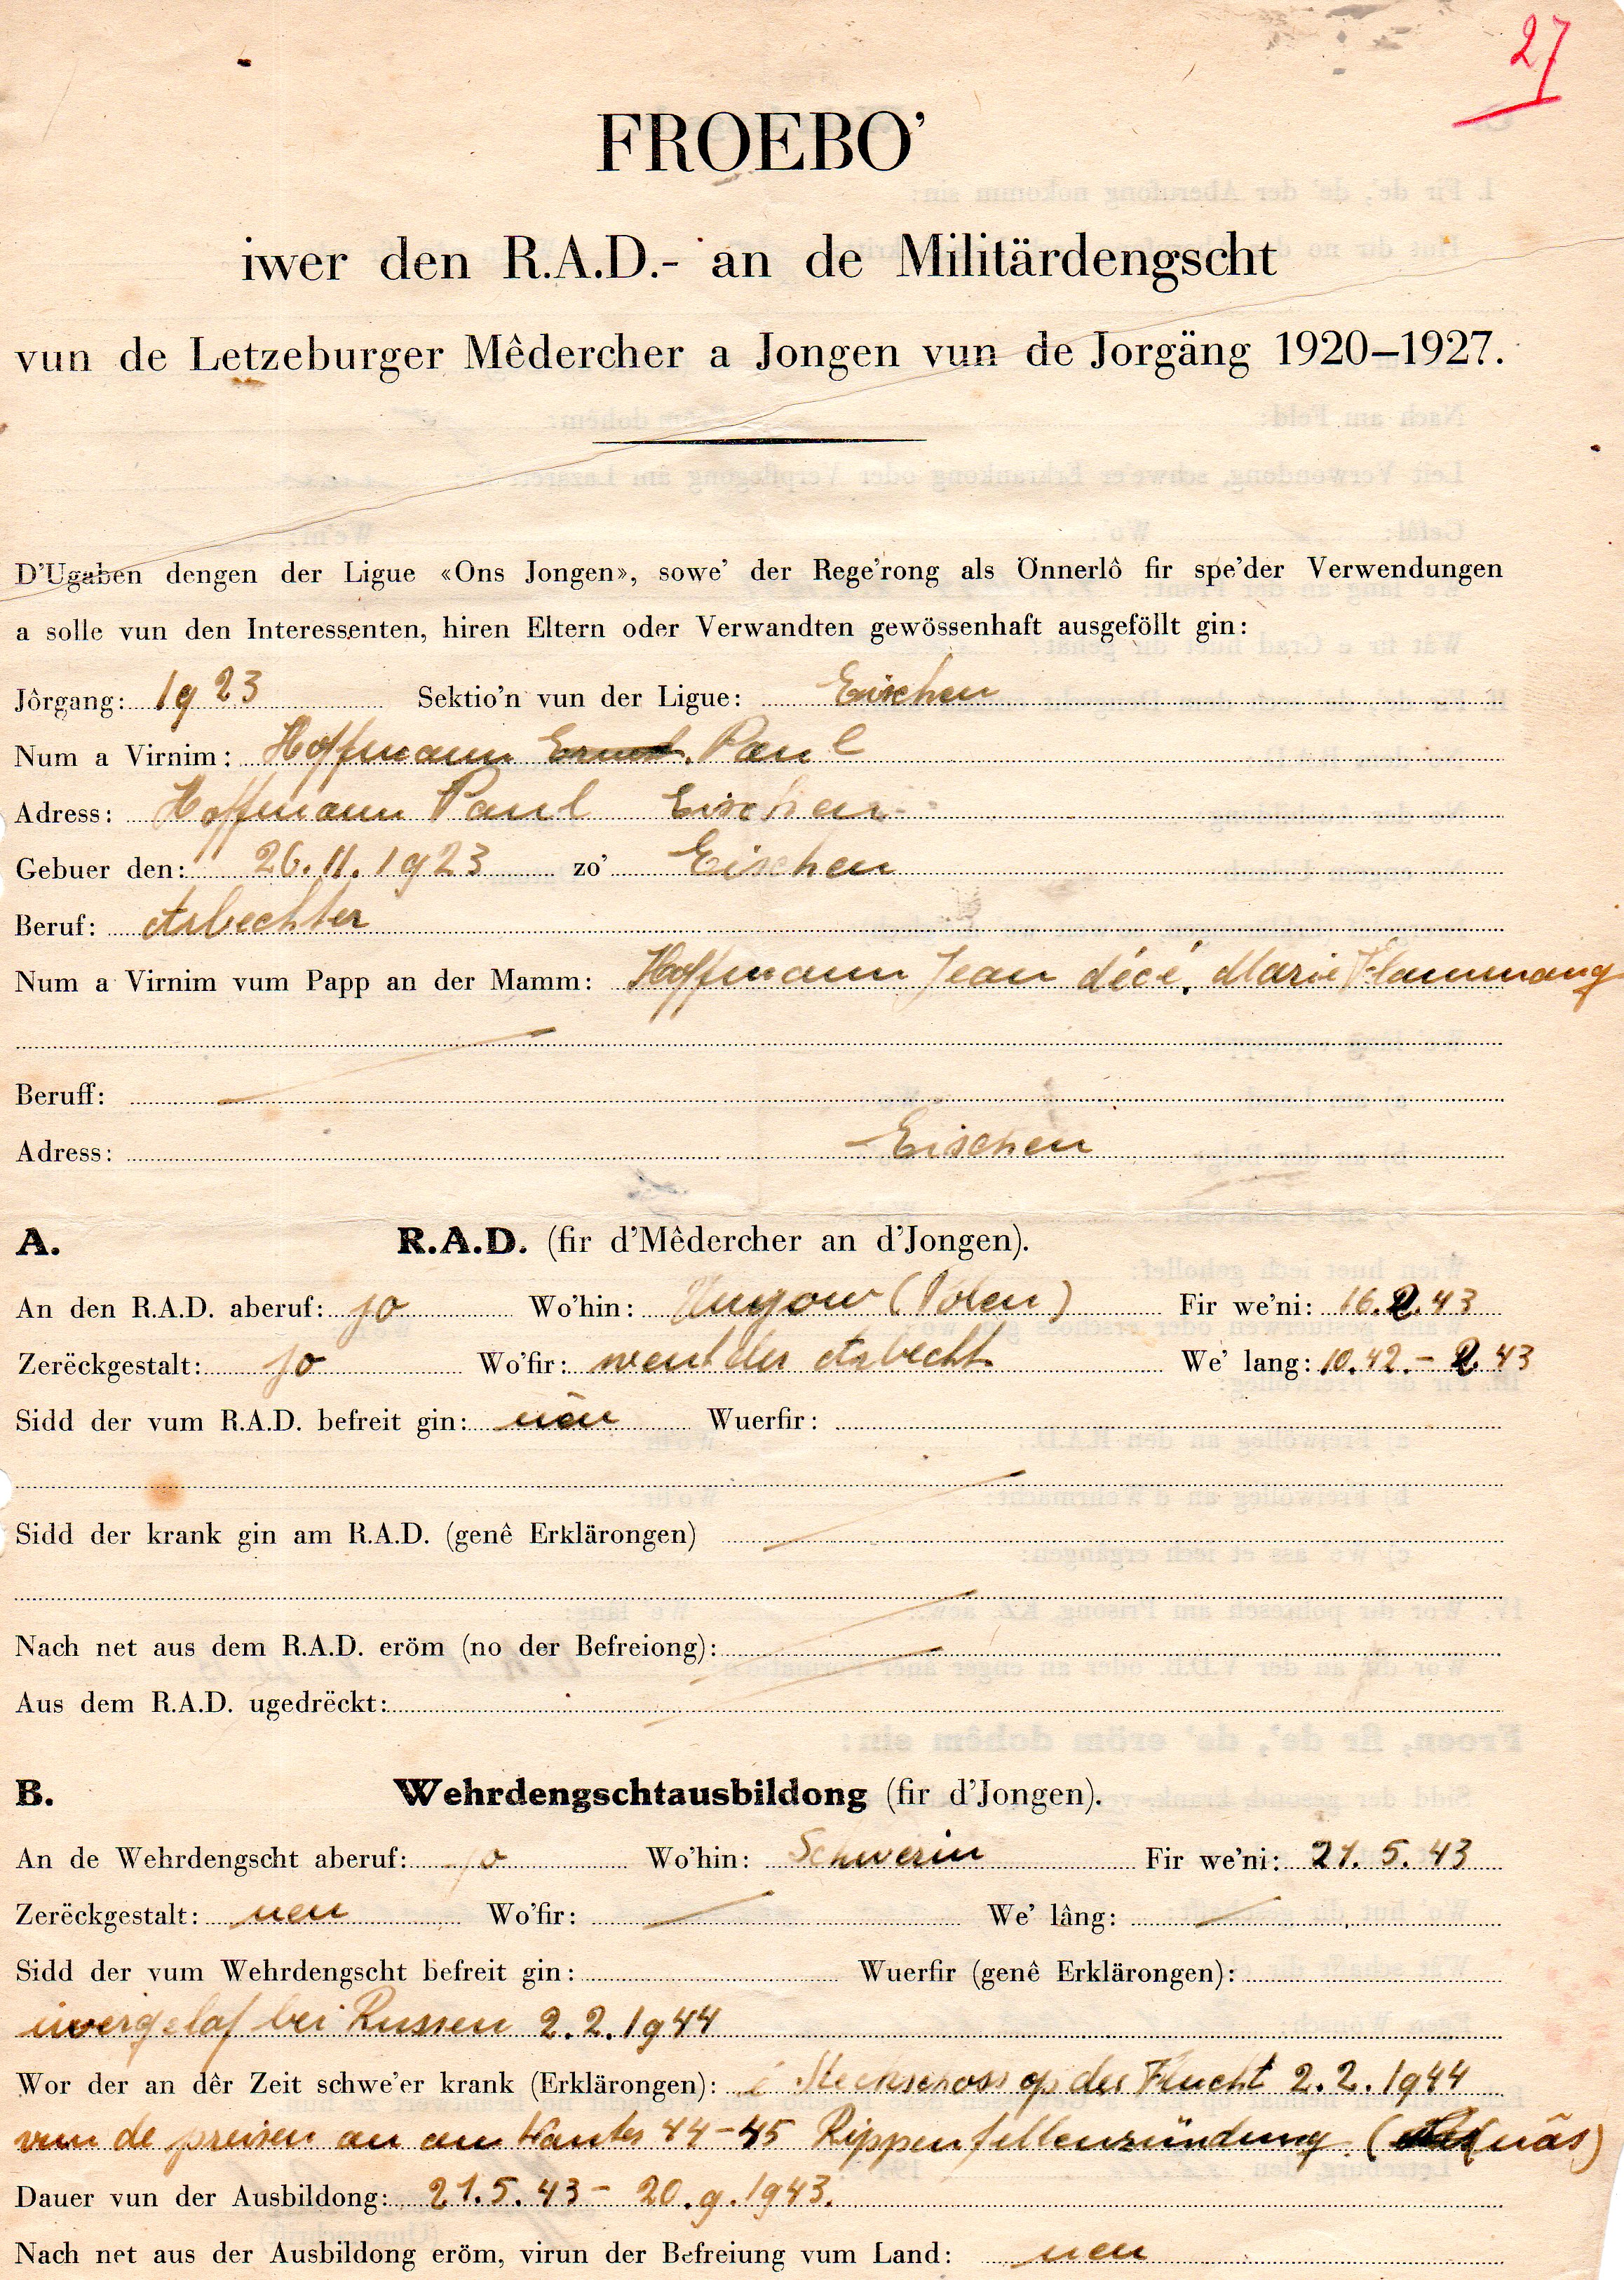 27
FROEBO'
iwer den R.A.D.- an de Militärdengscht
vun de Letzeburger Mêdercher a Jongen vun de Jorgäng 1920–1927.
D'Ugaben dengen der Ligue «Ons Jongen», sowe' der Rege'rong als Önnerlô fir spe'der Verwendungen
a solle vun den Interessenten, hiren Eltern oder Verwandten gewössenhaft ausgeföllt gin:
Jôrgang: 1923 Sektio'n vun der Ligue: Eischen
Num a Virnim: Hoffmann Paul
Adress: Hoffmann Paul Eischen
Gebuer den: 26.11.1923 zo' Eischen
Beruf: Arbechter
Num a Virnim vum Papp an der Mamm: Hoffmann Jean décé. Marie Flammang
Beruff:
Adress: Eischen
A. R.A.D. (fir d'Mêdercher an d'Jongen).
An den R.A.D. aberuf: jo Wo'hin: (Polen) Fir we'ni: 16.2.43
Zerëckgestalt: jo Wo'fir: went der Arbecht We' lang: 10.42.- 2.43
Sidd der vum R.A.D. befreit gin: nēn Wuerfir:
Sidd der krank gin am R.A.D. (genê Erklärongen)
Nach net aus dem R.A.D. eröm (no der Befreiong):
Aus dem R.A.D. ugedrëckt:
B. Wehrdengschtausbildong (fir d'Jongen).
An de Wehrdengscht aberuf: jo Wo'hin: Schwerin Fir we'ni: 21.5.43
Zerëckgestalt: nen Wo'fir: We' lâng:
Sidd der vum Wehrdengscht befreit gin: Wuerfir (genê Erklärongen):
iwergelaf bei Russen 2.2.1944
Wor der an dêr Zeit schwe'er krank (Erklärongen): Steckschoss op der Flucht 2.2.1944
vun de preisen an am Wanter 44-45 Rippenfellenzündung (nās)
Dauer vun der Ausbildong: 21.5.43- 20.9.1943.
Nach net aus der Ausbildong eröm, virun der Befreiung vum Land: nen